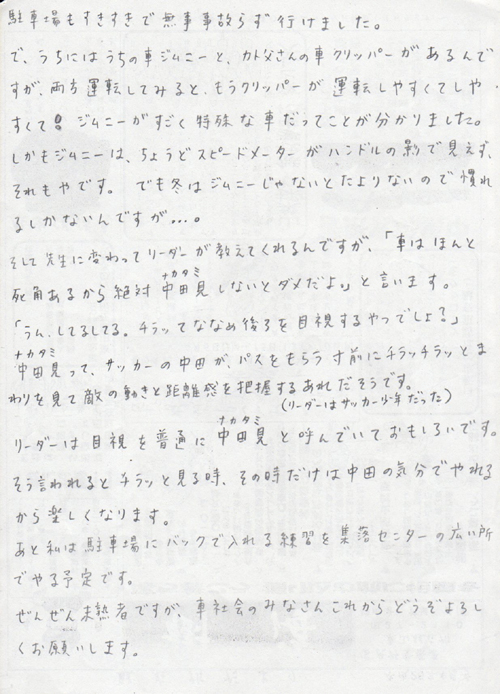 駐車場もすきすきで無事事故らず行けました。
で、うちにはうちの車ジムニーと、カト父さんの車クリッパーがあるんで
すが、両方運転してみると、もうクリッパーが運転しやすくてしや
すくて!ジムニーがすごく特殊な車だってことが分かりました。
しかもジムニーは、ちょうどスピードメーターがハンドルの影で見えず、
それもやです。 でも冬はジムニーじゃないとたよりないので慣れ
るしかないんですが…。
そして先生に変わってリーダーが教えてくれるんですが、「車はほんと
ナカタミ
死角あるから絶対中田見しないとダメだよ。」と言います。
「うん、してるしてる。チラッてななめ後ろを目視するやつでしょ?」
ナカタミ
中田見って、サッカーの中田が、パスをもらう寸前にチラッチラッとま
わりを見て敵の動きと距離感を把握するあれだそうです。
(リーダーはサッカー少年だった)
ナカタミ
リーダーは目視を普通に中田見と呼んでいておもしろいです。
そう言われるとチラッと見る時、その時だけは中田の気分でやれる
から楽しくなります。
あと私は駐車場にバックで入れる練習を集落センターの広い所
でやる予定です。
ぜんぜん未熟者ですが、車社会のみなさんこれからどうぞよろし
くお願いします。